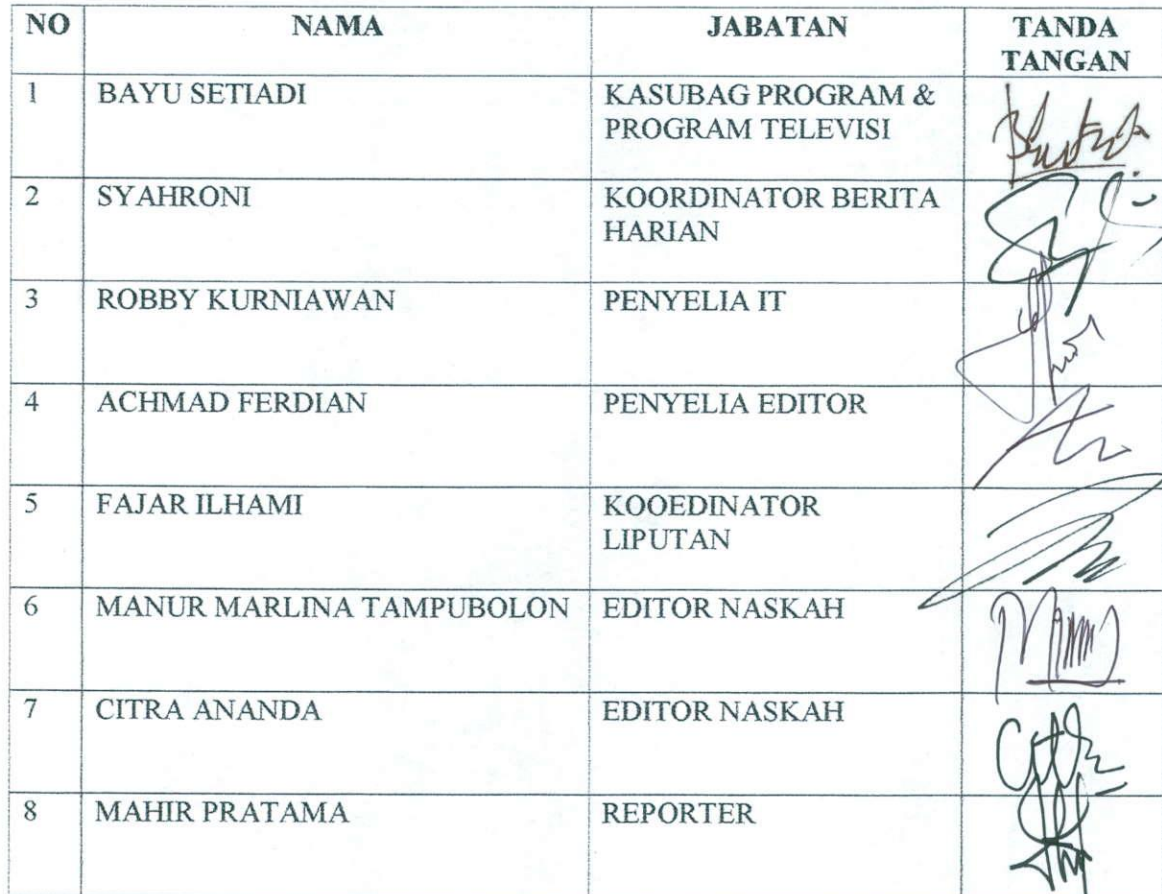 NO NAMA JABATAN TANDA TANGAN
1 BAYU SETIADI KASUBAG PROGRAM &
PROGRAM TELEVISI
2 SYAHRONI KOORDINATOR BERITA
HARIAN
3 ROBBY KURNIAWAN PENYELIA IT
4 ACHMAD FERDIAN PENYELIA EDITOR
5 FAJAR ILHAMI KOOEDINATOR
LIPUTAN
6 MANUR MARLINA TAMPUBOLON EDITOR NASKAH
7 CITRA ANANDA EDITOR NASKAH
8 MAHIR PRATAMA REPORTER